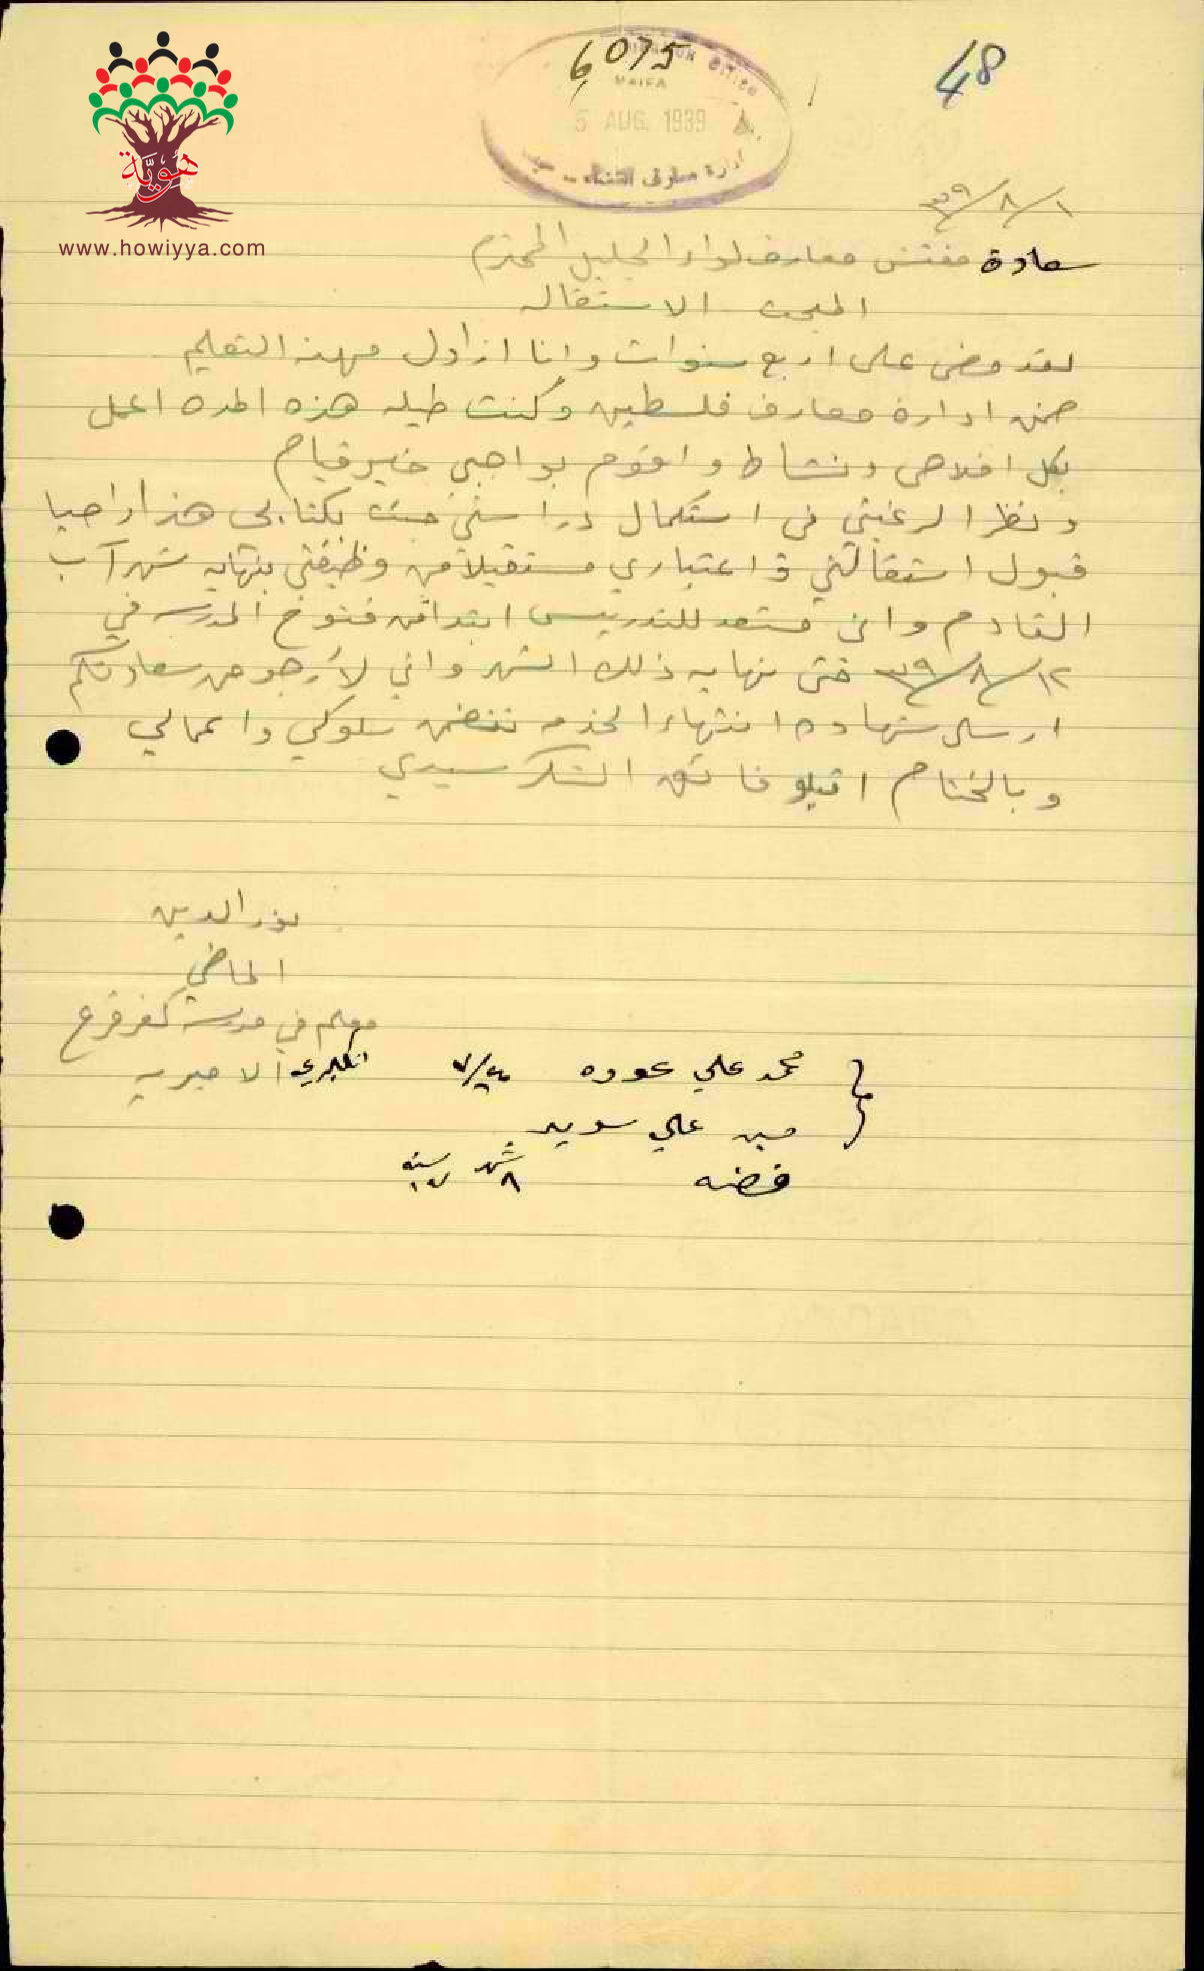 48
6075
HAIFA
5 AUG. 1939
هُوِيَّة
www.howiyya.com
٣٩/٨/١
سعادة مفتش معارف لواء الجليل المحترم
المبحث الاستقاله
لقد مضى على اربع سنوات وانا ازاول مهنه التعليم
ضمن ادارة معارف فلسطين وكنت طيله هذه المده اعمل
بكل اخلاص ونشاط واقوم بواجبي خير قيام
ونظرا لرغبتي في استكمال دراستي جئت بكتابي هذا راجيا
قبول استقالتي و اعتباري مستقيلا من وظيفتي بنهايه شهر آب
القادم واني مستعد للتدريس ابتدا من فتوح المدرسه في
٣٩/٨/١٢ حتى نهايه ذلك الشهر واني لأرجو من سعادتكم
ارسال شهاده انتهاء الخدمه تتضمن سلوكي واعمالي
وبالختام اقبلو فائق الشكر سيدي
نور الدين
الماضي
معلم في مدرسة كفر قرع
الاميريه
محمد علي عوده
علي سويد
فضه ٨ شهر سنه